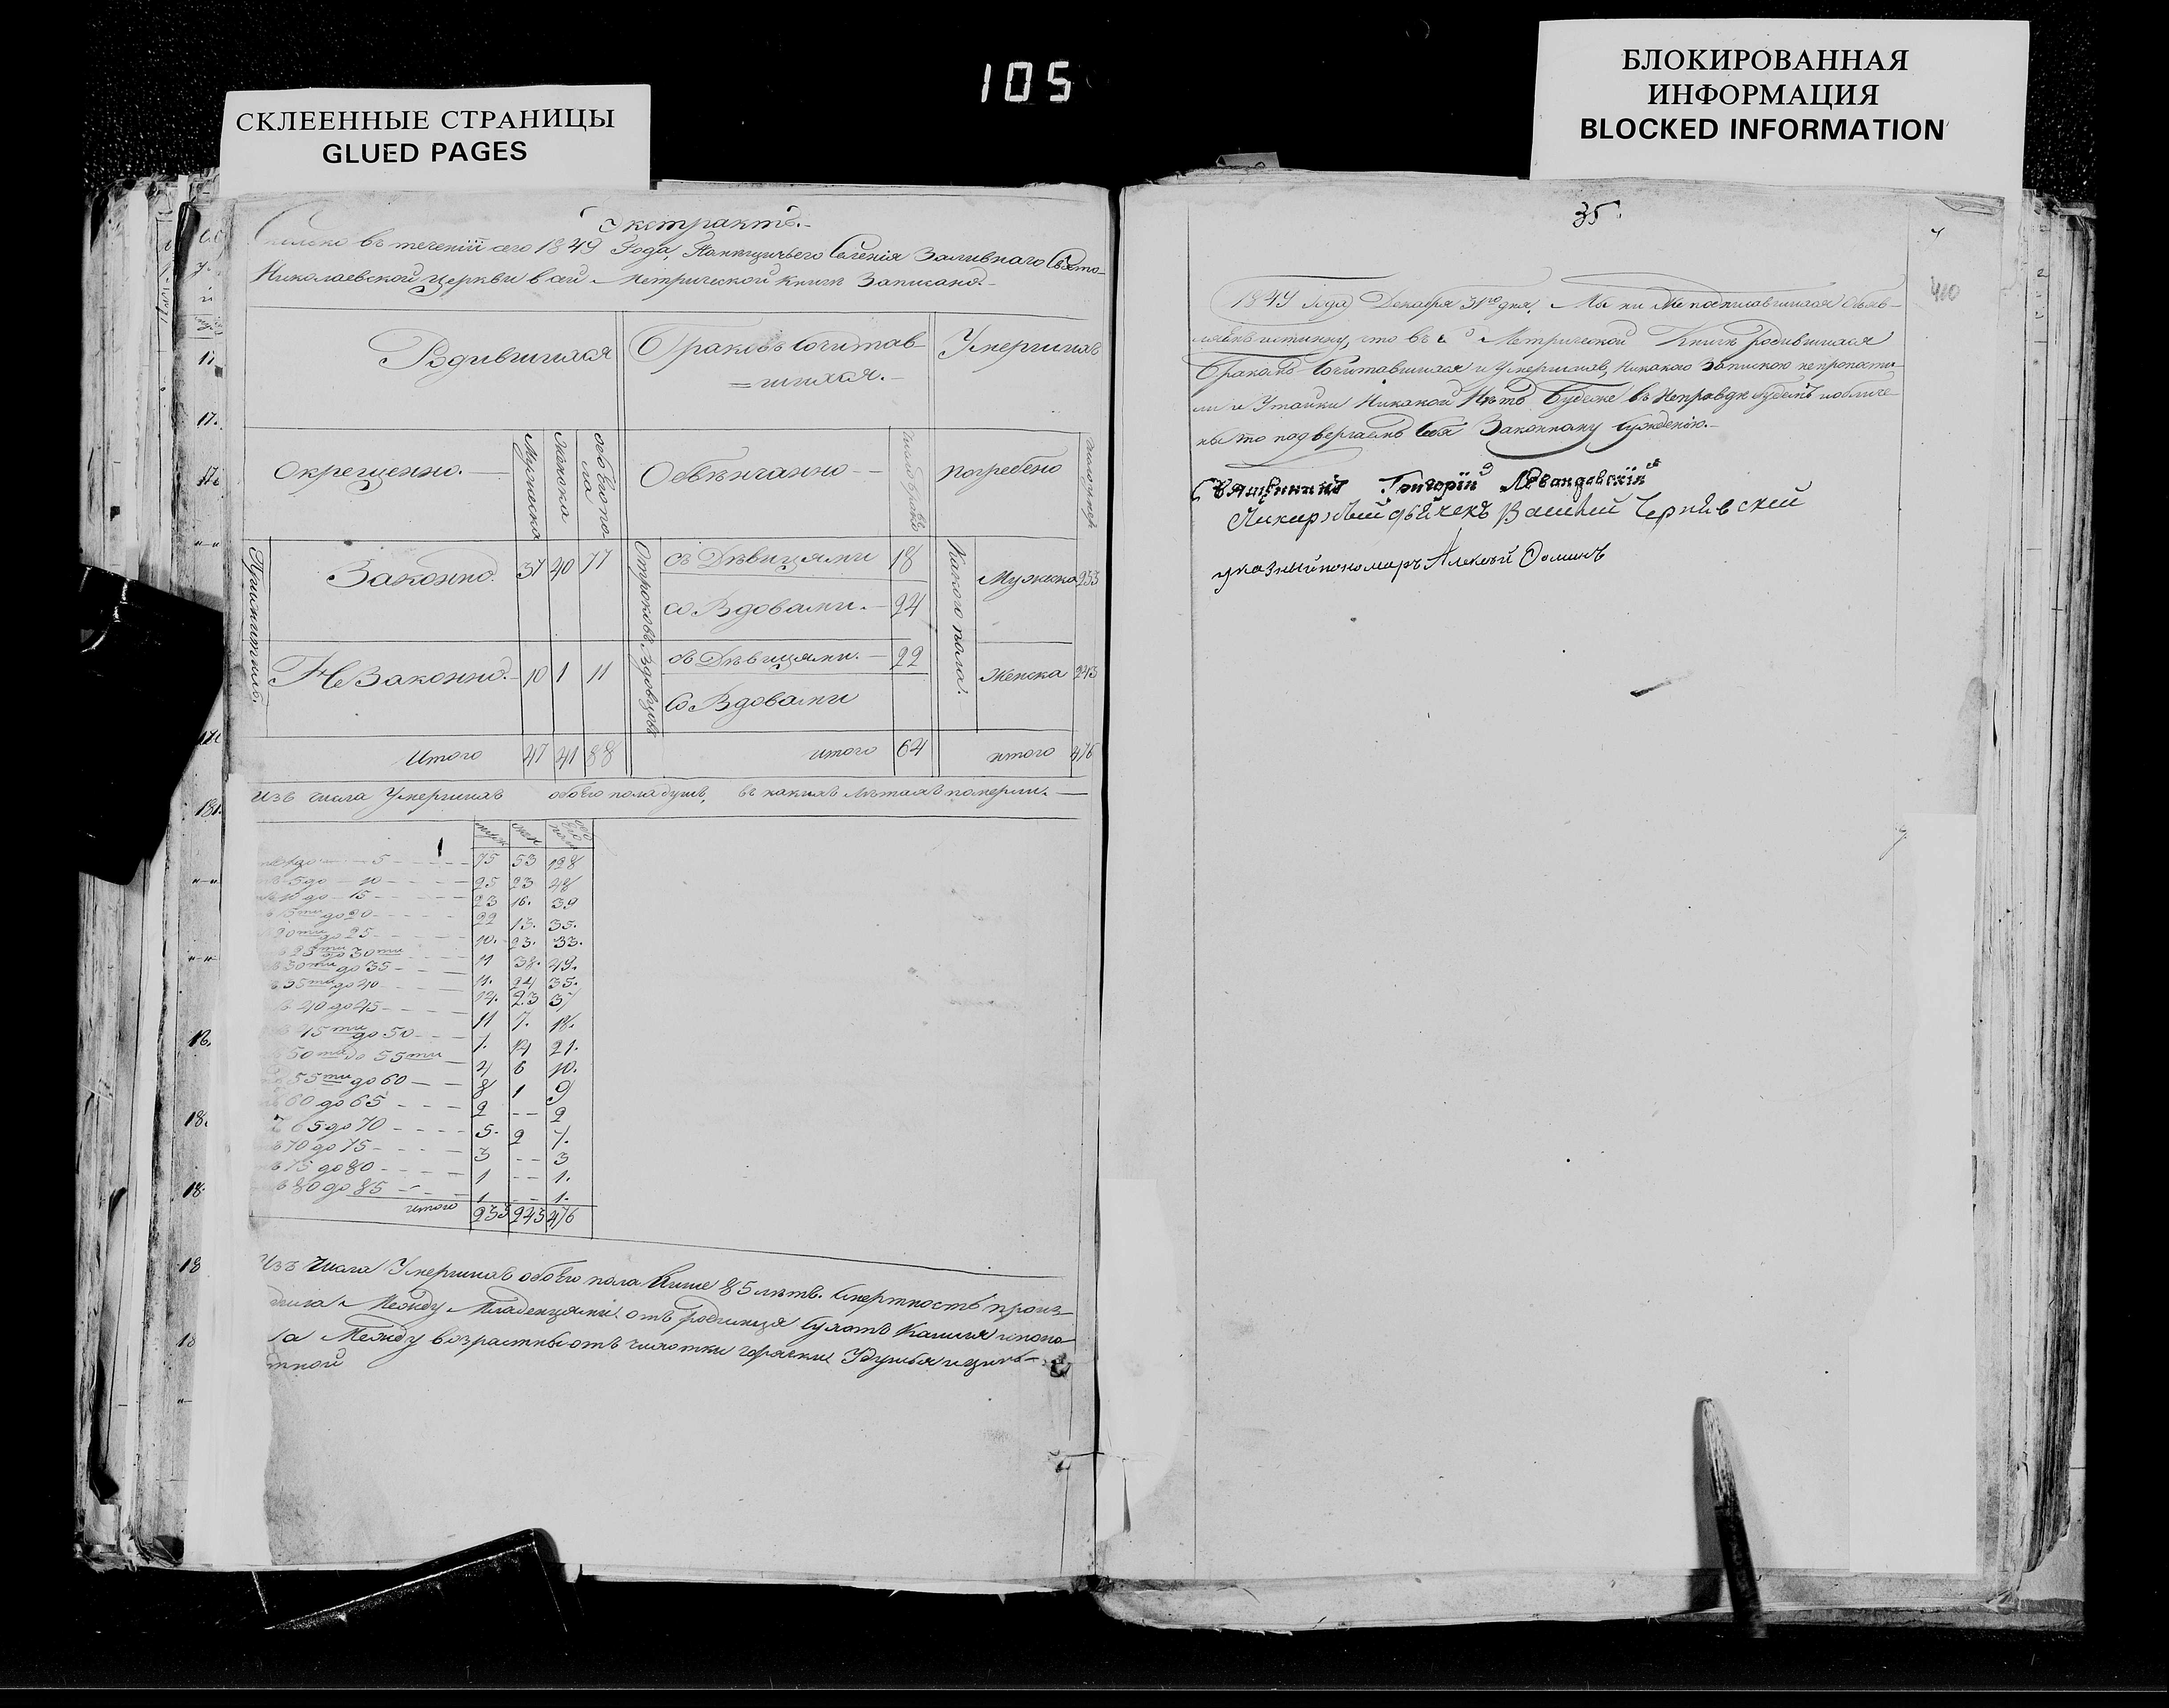 105
СКЛЕЕННЫЕ СТРАНИЦЫ
GLUED PAGES
БЛОКИРОВАННАЯ
ИНФОРМАЦИЯ
BLOCKED INFORMATION
Экстрактъ.-
въ теченіи сего 1849 Года, Селенія Заливнаго Свято-
Николаевской церкви в сей Метрической книги Записано.-
Родившихся
Браковъ Сочитав-
=шихся.-
Умершихъ
Окрещенно.-
Мужеска
Женска
обоего пола
Обвѣнчанно--
число браковъ
погребено
Незаконно.- 10 1 11
Законно. 37 40 77
Отроковъ
съ Дѣвицами 18
со Вдовами.- 24
Вдовцовъ
съ Дѣвицами.- 22
Со Вдовами
Какого пола.-
Мужеска 233
Женска 243
Итого 47 41 88
итого 64
итого 476
Изъ числа Умершихъ обоего пола душъ, въ какихъ лѣтахъ померли.-
муж жен
до 5 75 53 128
5 до 10 25 23 48
10 до 15 23 16. 39
15 до 20 22 13. 35.
20ти до 25 10. 23. 33.
25ти до 30ти 11 38. 49.
30ти до 35 11. 24 35.
35ти до 40 14. 23 37
40 до 45 11 7. 18.
45ти до 50 7. 14 21.
50ти до 55ти 4 6 10.
55ти до 60 8 1 9
60 до 65 2 -- 2
65 до 70 5. 2 7.
70 до 75 3 -- 3
75 до 80 1 -- 1.
80 до 85 1 -- 1.
итого 233 243 476
Изъ числа Умершихъ обоего пола Выше 85 лѣтъ. Смертность произ-
Между Младенцами отъ родимца сухотъ Кашля
Между возрастны отъ чихотки горячки Удушья и
35
1849 Года Декабря 31го дня. Мы ни же подписавшиася объяв-
ляемъ истинну, что въ Метрической Книги родившихся
Бракомъ Сочитавшихся и Умершихъ, Никакого Запискою непропусти-
ли и Утайки Никакой Нѣтъ Будеже въ Неправде будемъ изобличе-
ны то подвергаемъ себя Законному Суждению.-
Священникъ Григорій Левандовскій
Василий Чернявский
указный пономарь Алексѣй Фоминъ